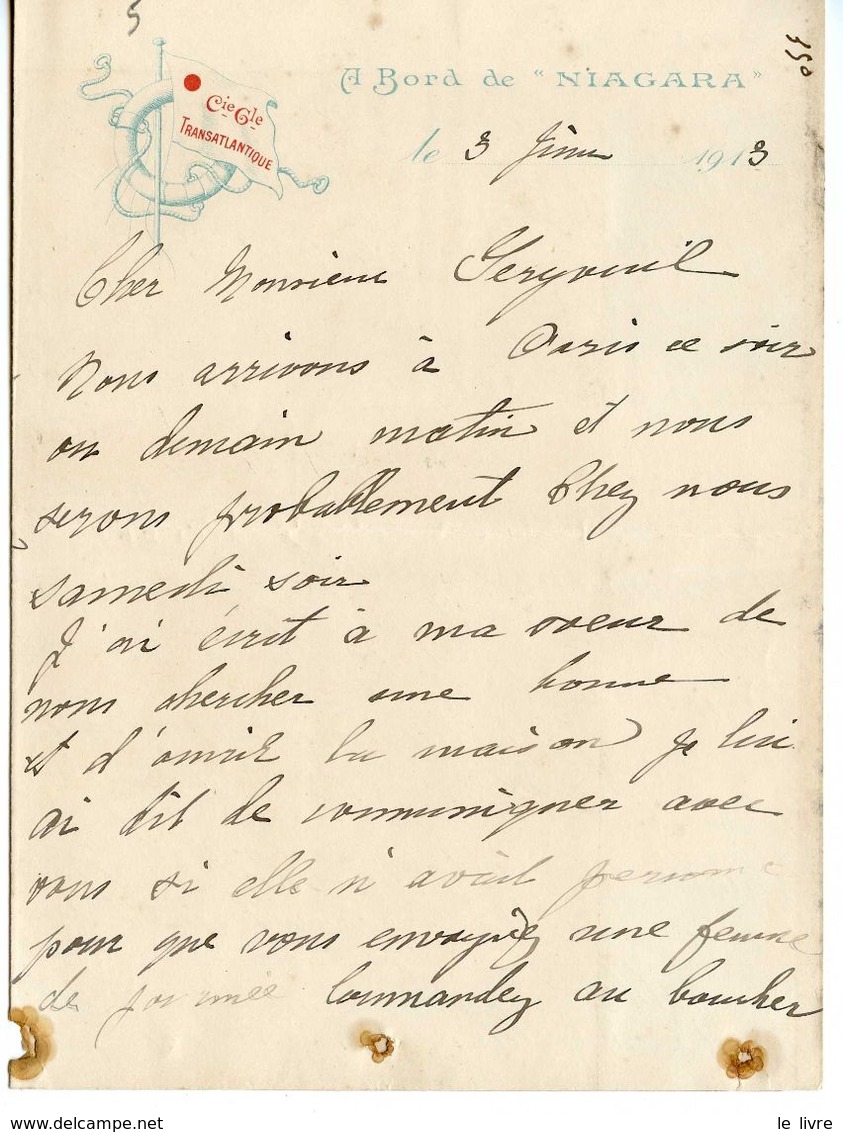 5
350
Cie Gle
TRANSATLANTIQUE
A Bord de "NIAGARA"
le 3 1913
Cher Monsieur
Nous arrivons à Paris ce soir
ou demain matin et nous
serons probablement Chez nous
samedi soir
J'ai écrit à ma soeur de
nous chercher une bonne
et d'ouvrir la maison je lui
ai dit de communiquer avec
vous si elle n'avait personne
pour que vous envoyiez une femme
de journée Commandez au boucher
le livre